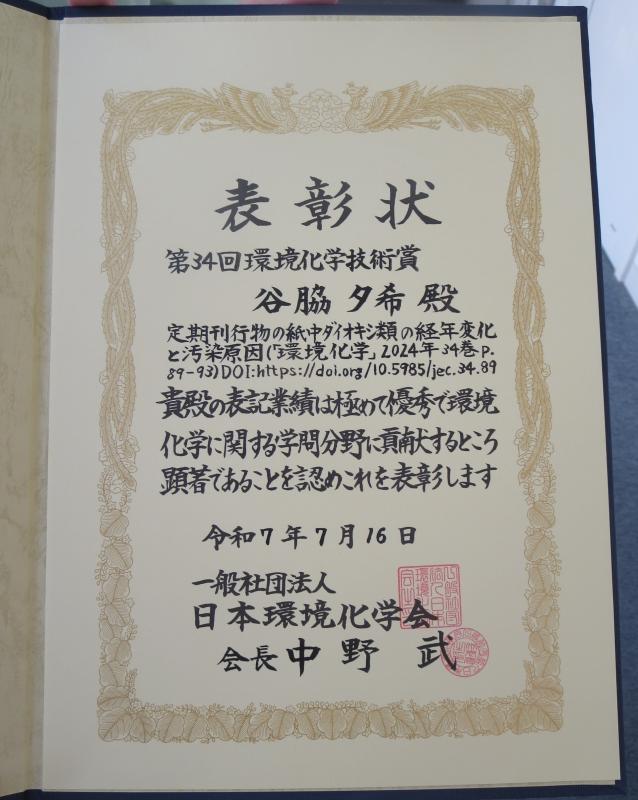 表彰状
第34回環境化学技術賞
谷脇夕希殿
定期刊行物の紙中ダイオキシン類の経年変化
と汚染原因(「環境化学」2024年34巻p.
89-93)DOI:https://doi.org/10.5985/jec.34.89
貴殿の表記業績は極めて優秀で環境
化学に関する学問分野に貢献するところ
顕著であることを認めこれを表彰します
令和7年7月16日
一般社団法人
日本環境化学会
会長 中野 武